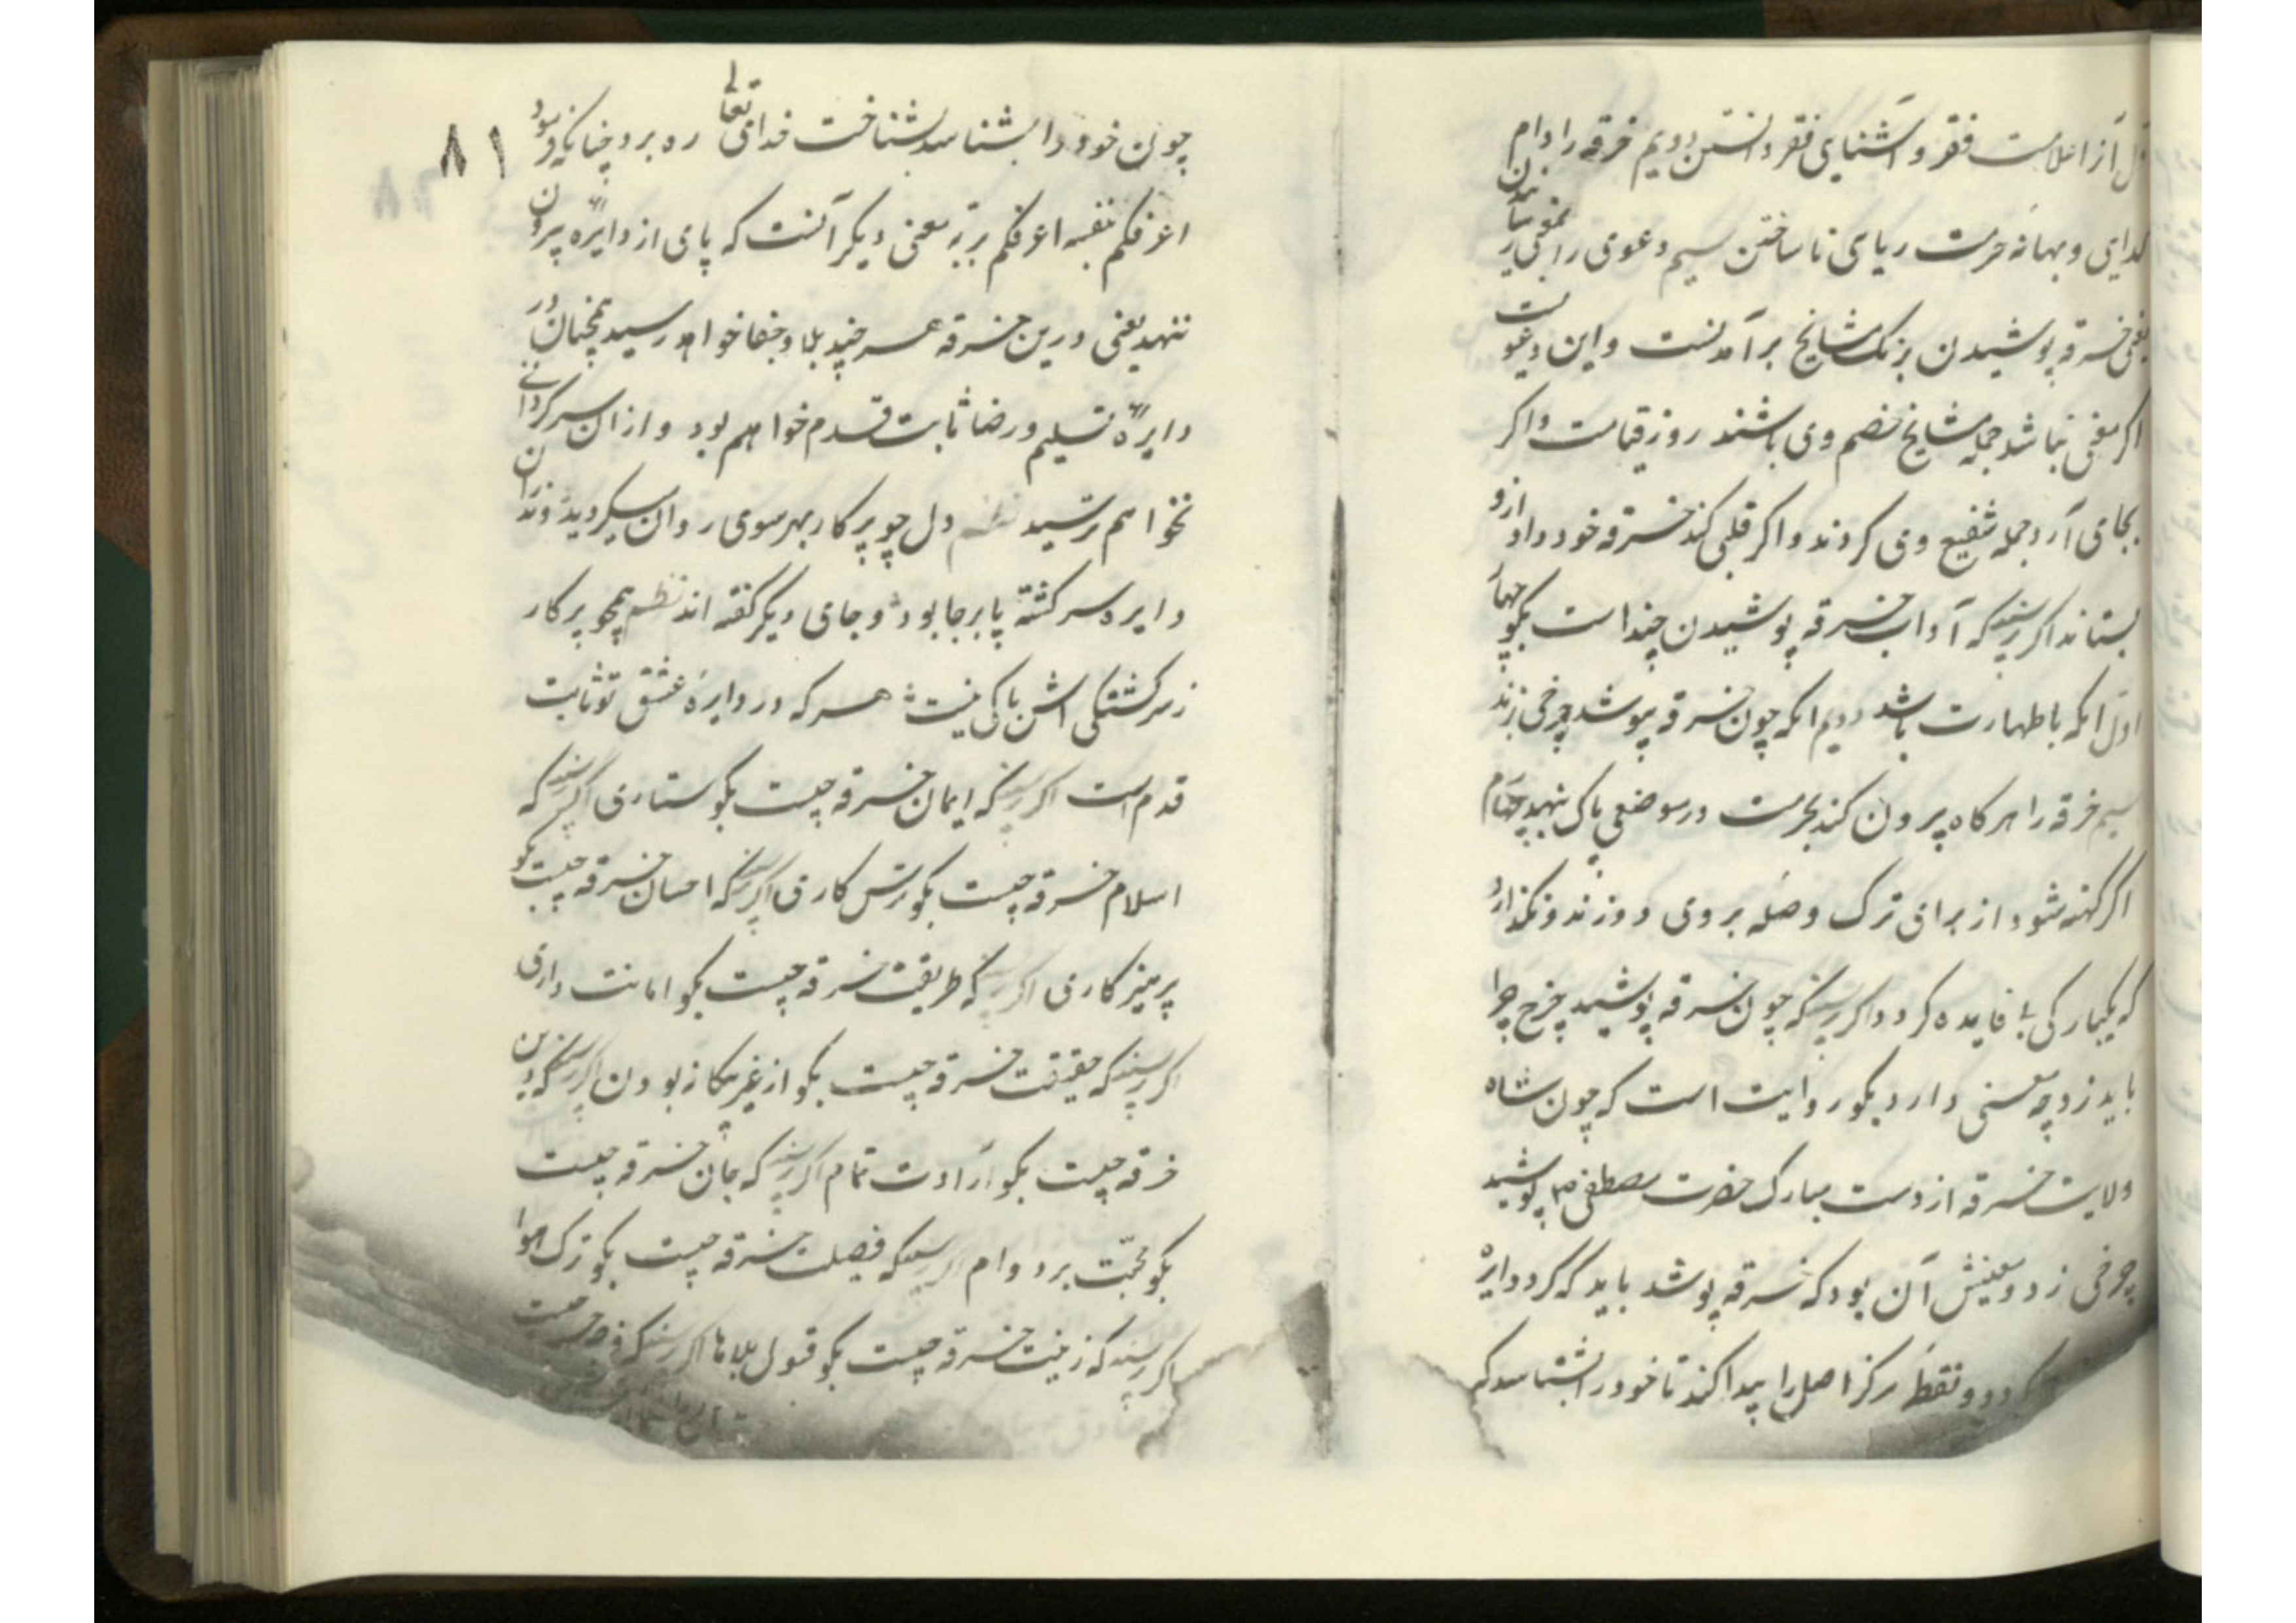 اول آنرا علامت فقر و آشنای فقر دانستن دویم خرقه را دام
گدایی و بهانه حرمت ریای نا ساختن سیم دعوی را بی
یعنی خرقه پوشیدن برنگ مشایخ برآمدنست و این دعویست
اگر معنی نباشد جمله مشایخ خصم وی باشند روز قیامت و اگر
بجای آرد جمله شفیع وی گردند و اگر قلبی کند خرقه خود را ازو
بستانند اگر پرسند که آداب خرقه پوشیدن چند است بگو چهار
اول آنکه با طهارت باشد دویم آنکه چون خرقه پوشد چرخی زند
سیم خرقه را هر گاه بیرون کند بحرمت در موضعی پاک نهد چهارم
اگر کهنه شود از برای ترک وصله بر وی دوزند و نگذارد
که یکبارگی بی فایده گردد اگر پرسند که چون خرقه پوشید چرخ چرا
باید زد و چه معنی دارد بگو روایت است که چون شاه
ولایت خرقه از دست مبارک حضرت مصطفی صلم پوشید
چرخی زد و معنیش آن بود که خرقه پوشد باید که گرد دایره
گردد و نقطه مرکز اصل را پیدا کند تا خود را بشناسد که
چون خود را بشناسد بشناخت خدای تعالی ره برد چنانکه فرمود
اعرفکم بنفسه اعرفکم بربه معنی دیگر آنست که پای از دایره بیرون
ننهد یعنی درین خرقه هر چند بلا و جفا خواهد رسید همچنان در
دایره تسلیم و رضا ثابت قدم خواهم بود و از ان سرگردانی
نخواهم ترسید نظم دل چو پرکار بهر سوی روان میگردید وندران
دایره سرگشته پا برجا بود و جای دیگر گفته اند نظم همچو پرکار
ز سرگشتگی اش باکی نیست هر که در دایره عشق تو ثابت
قدم است اگر پرسند که ایمان خرقه چیست بگو ستاری اگر پرسند که
اسلام خرقه چیست بگو ترس کاری اگر پرسند که احسان خرقه چیست بگو
پرهیزکاری اگر پرسند که طریقت خرقه چیست بگو امانت داری
اگر پرسند که حقیقت خرقه چیست بگو از غیر بیگانه بودن اگر پرسند که دین
خرقه چیست بگو ارادت تمام اگر پرسند که جان خرقه چیست
بگو محبت بر دوام اگر پرسند که فضیلت خرقه چیست بگو ترک هوا
اگر پرسند که زینت خرقه چیست بگو قبول بلاها اگر پرسند که
۸۱